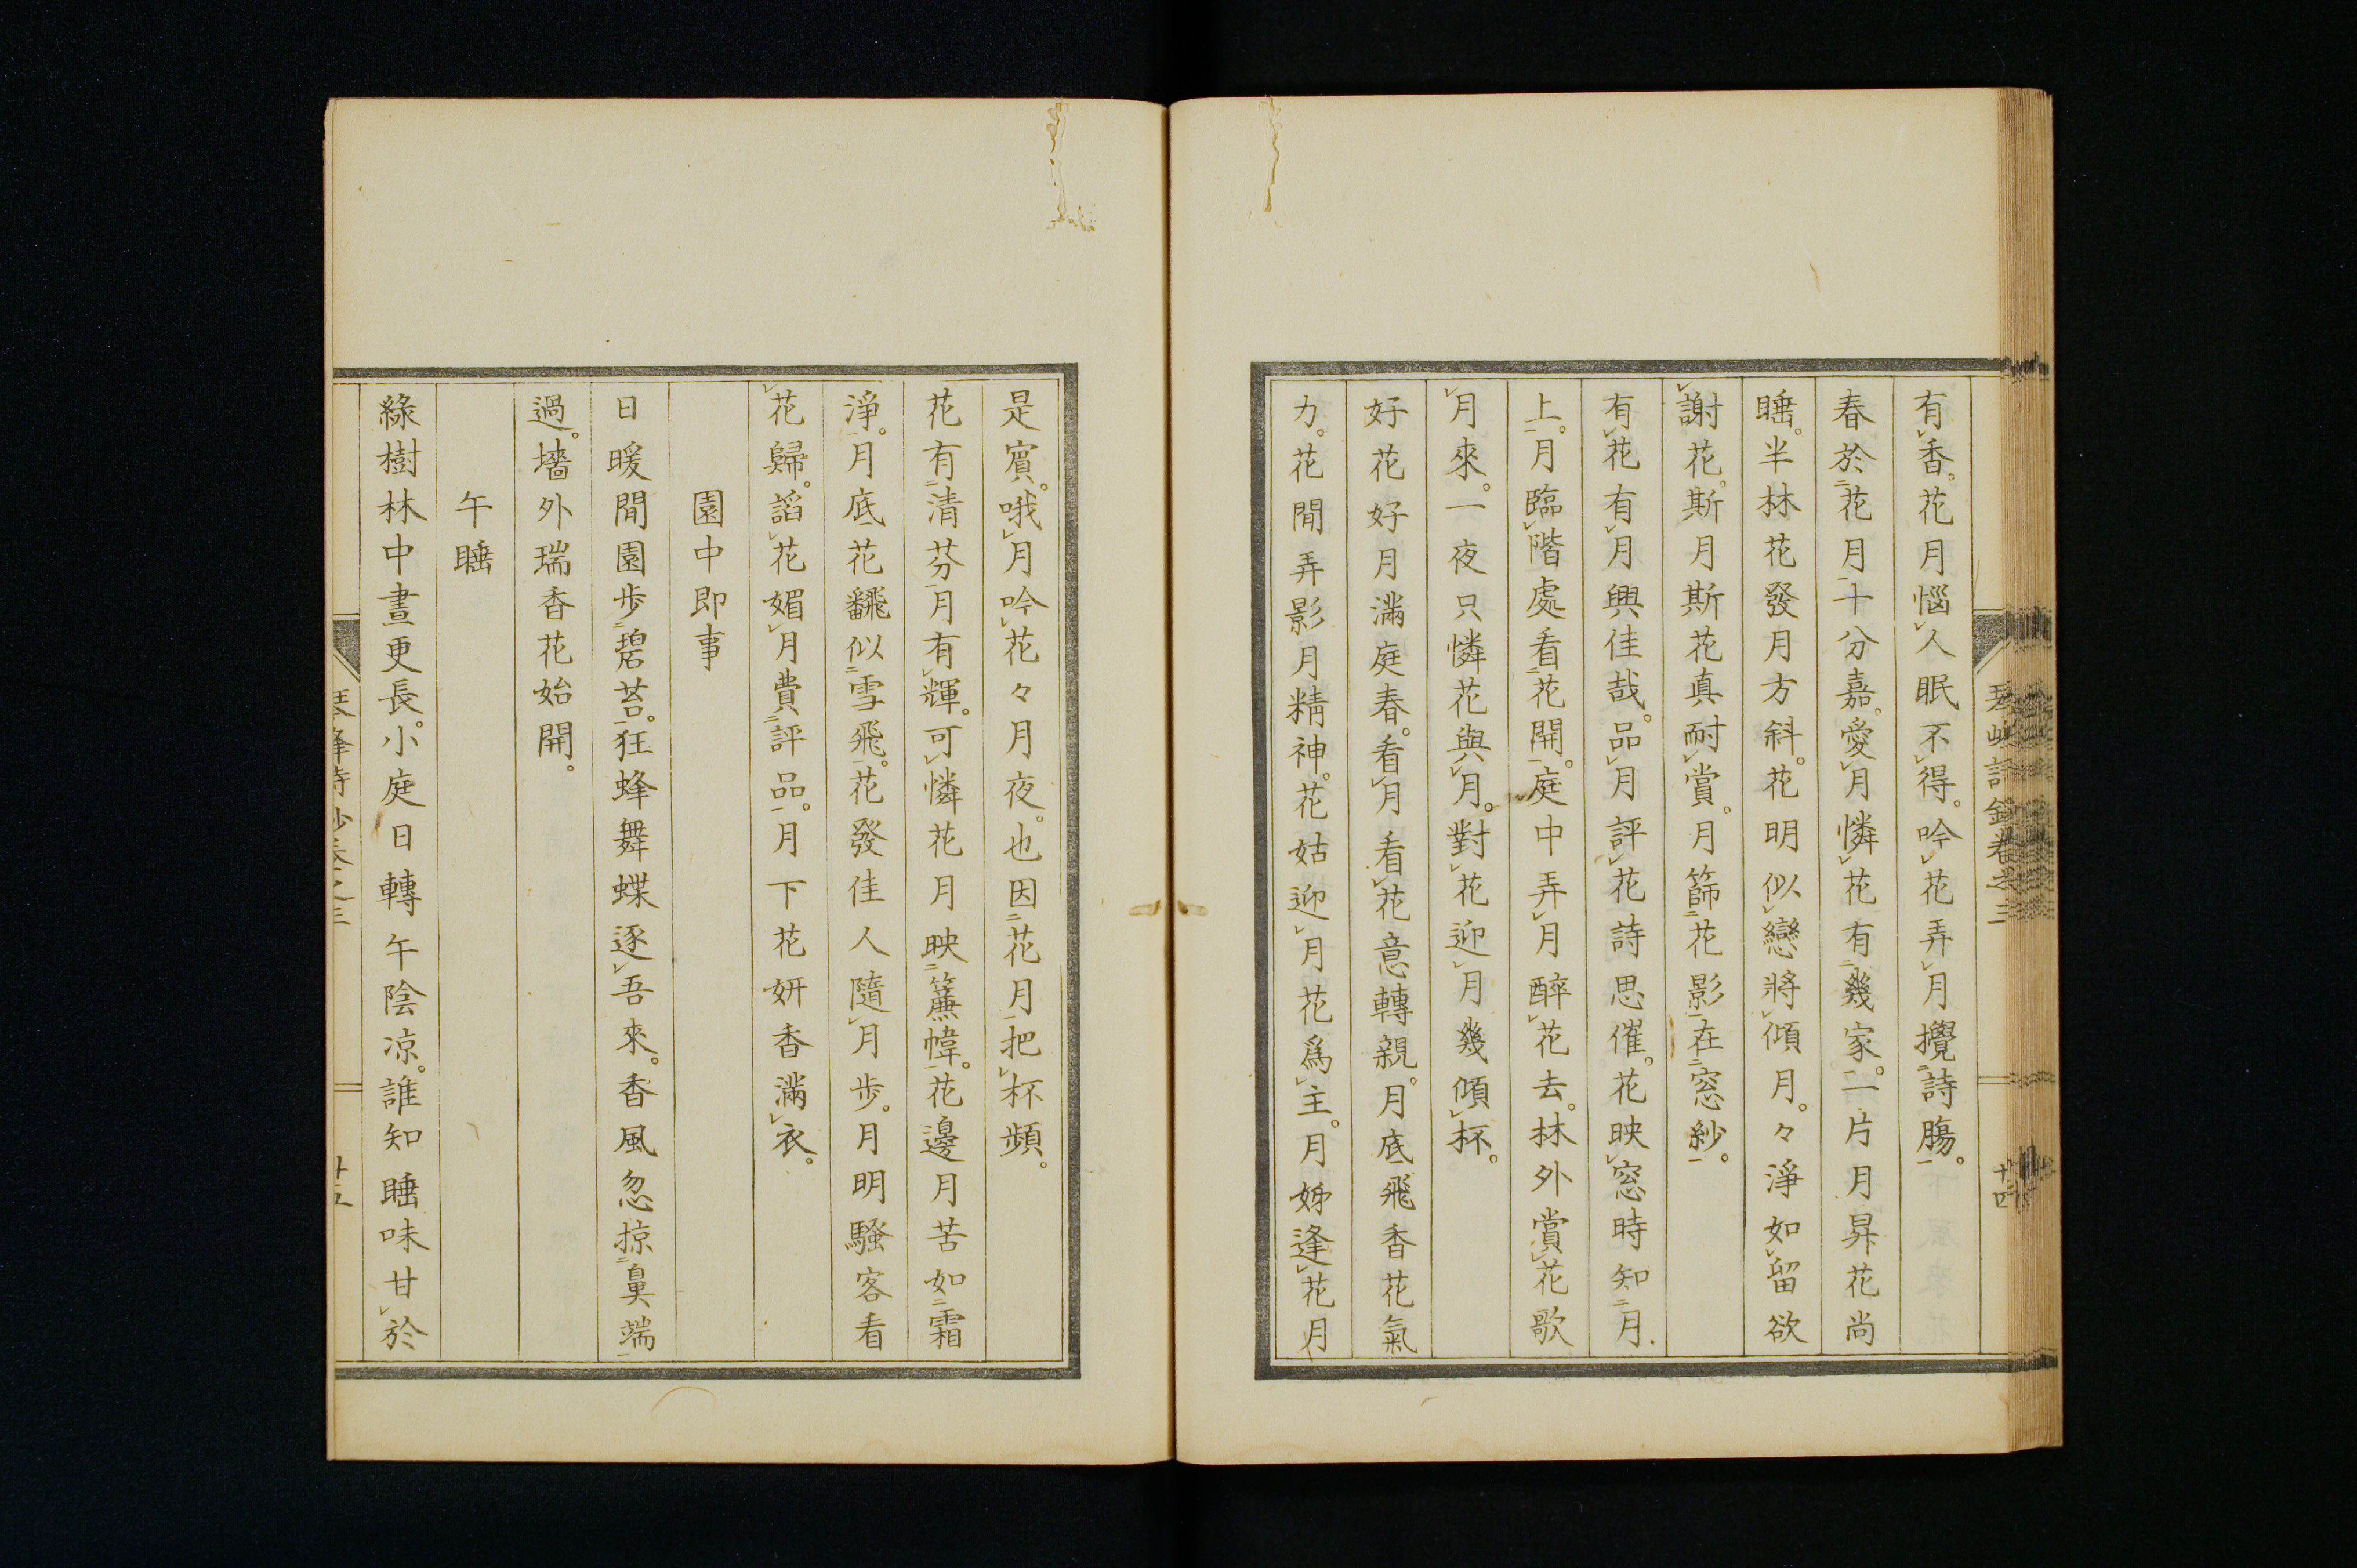 有香。花月惱人眠不得。吟花弄月攪詩膓。
春於花月十分嘉。愛月憐花有幾家。一片月昇花尚
睡。半林花發月方斜。花明似戀將傾月。々淨如留欲
謝花。斯月斯花真耐賞。月篩花影在窓紗。
有花有月興佳哉。品月評花詩思催。花映窓時知月
上。月臨階處看花開。庭中弄月醉花去。林外賞花歌
月來。一夜只憐花與月。對花迎月幾傾杯。
好花好月滿庭春。看月看花意轉親。月底飛香花氣
力。花閒弄影月精神。花姑迎月花爲主。月姊逢花月
是賓。哦月吟花々月夜。也因花月把杯頻。
花有清芬月有輝。可憐花月映簾幃。花邊月苦如霜
淨。月底花飜似雪飛。花發佳人隨月步。月明騷客看
花歸。謟花媚月費評品。月下花妍香滿衣。
園中即事
日暖閒園步碧苔。狂蜂舞蝶逐吾來。香風忽掠鼻端
過。墻外瑞香花始開。
午睡
綠樹林中晝更長。小庭日轉午陰凉。誰知睡味甘於
卷之三
十四
十五